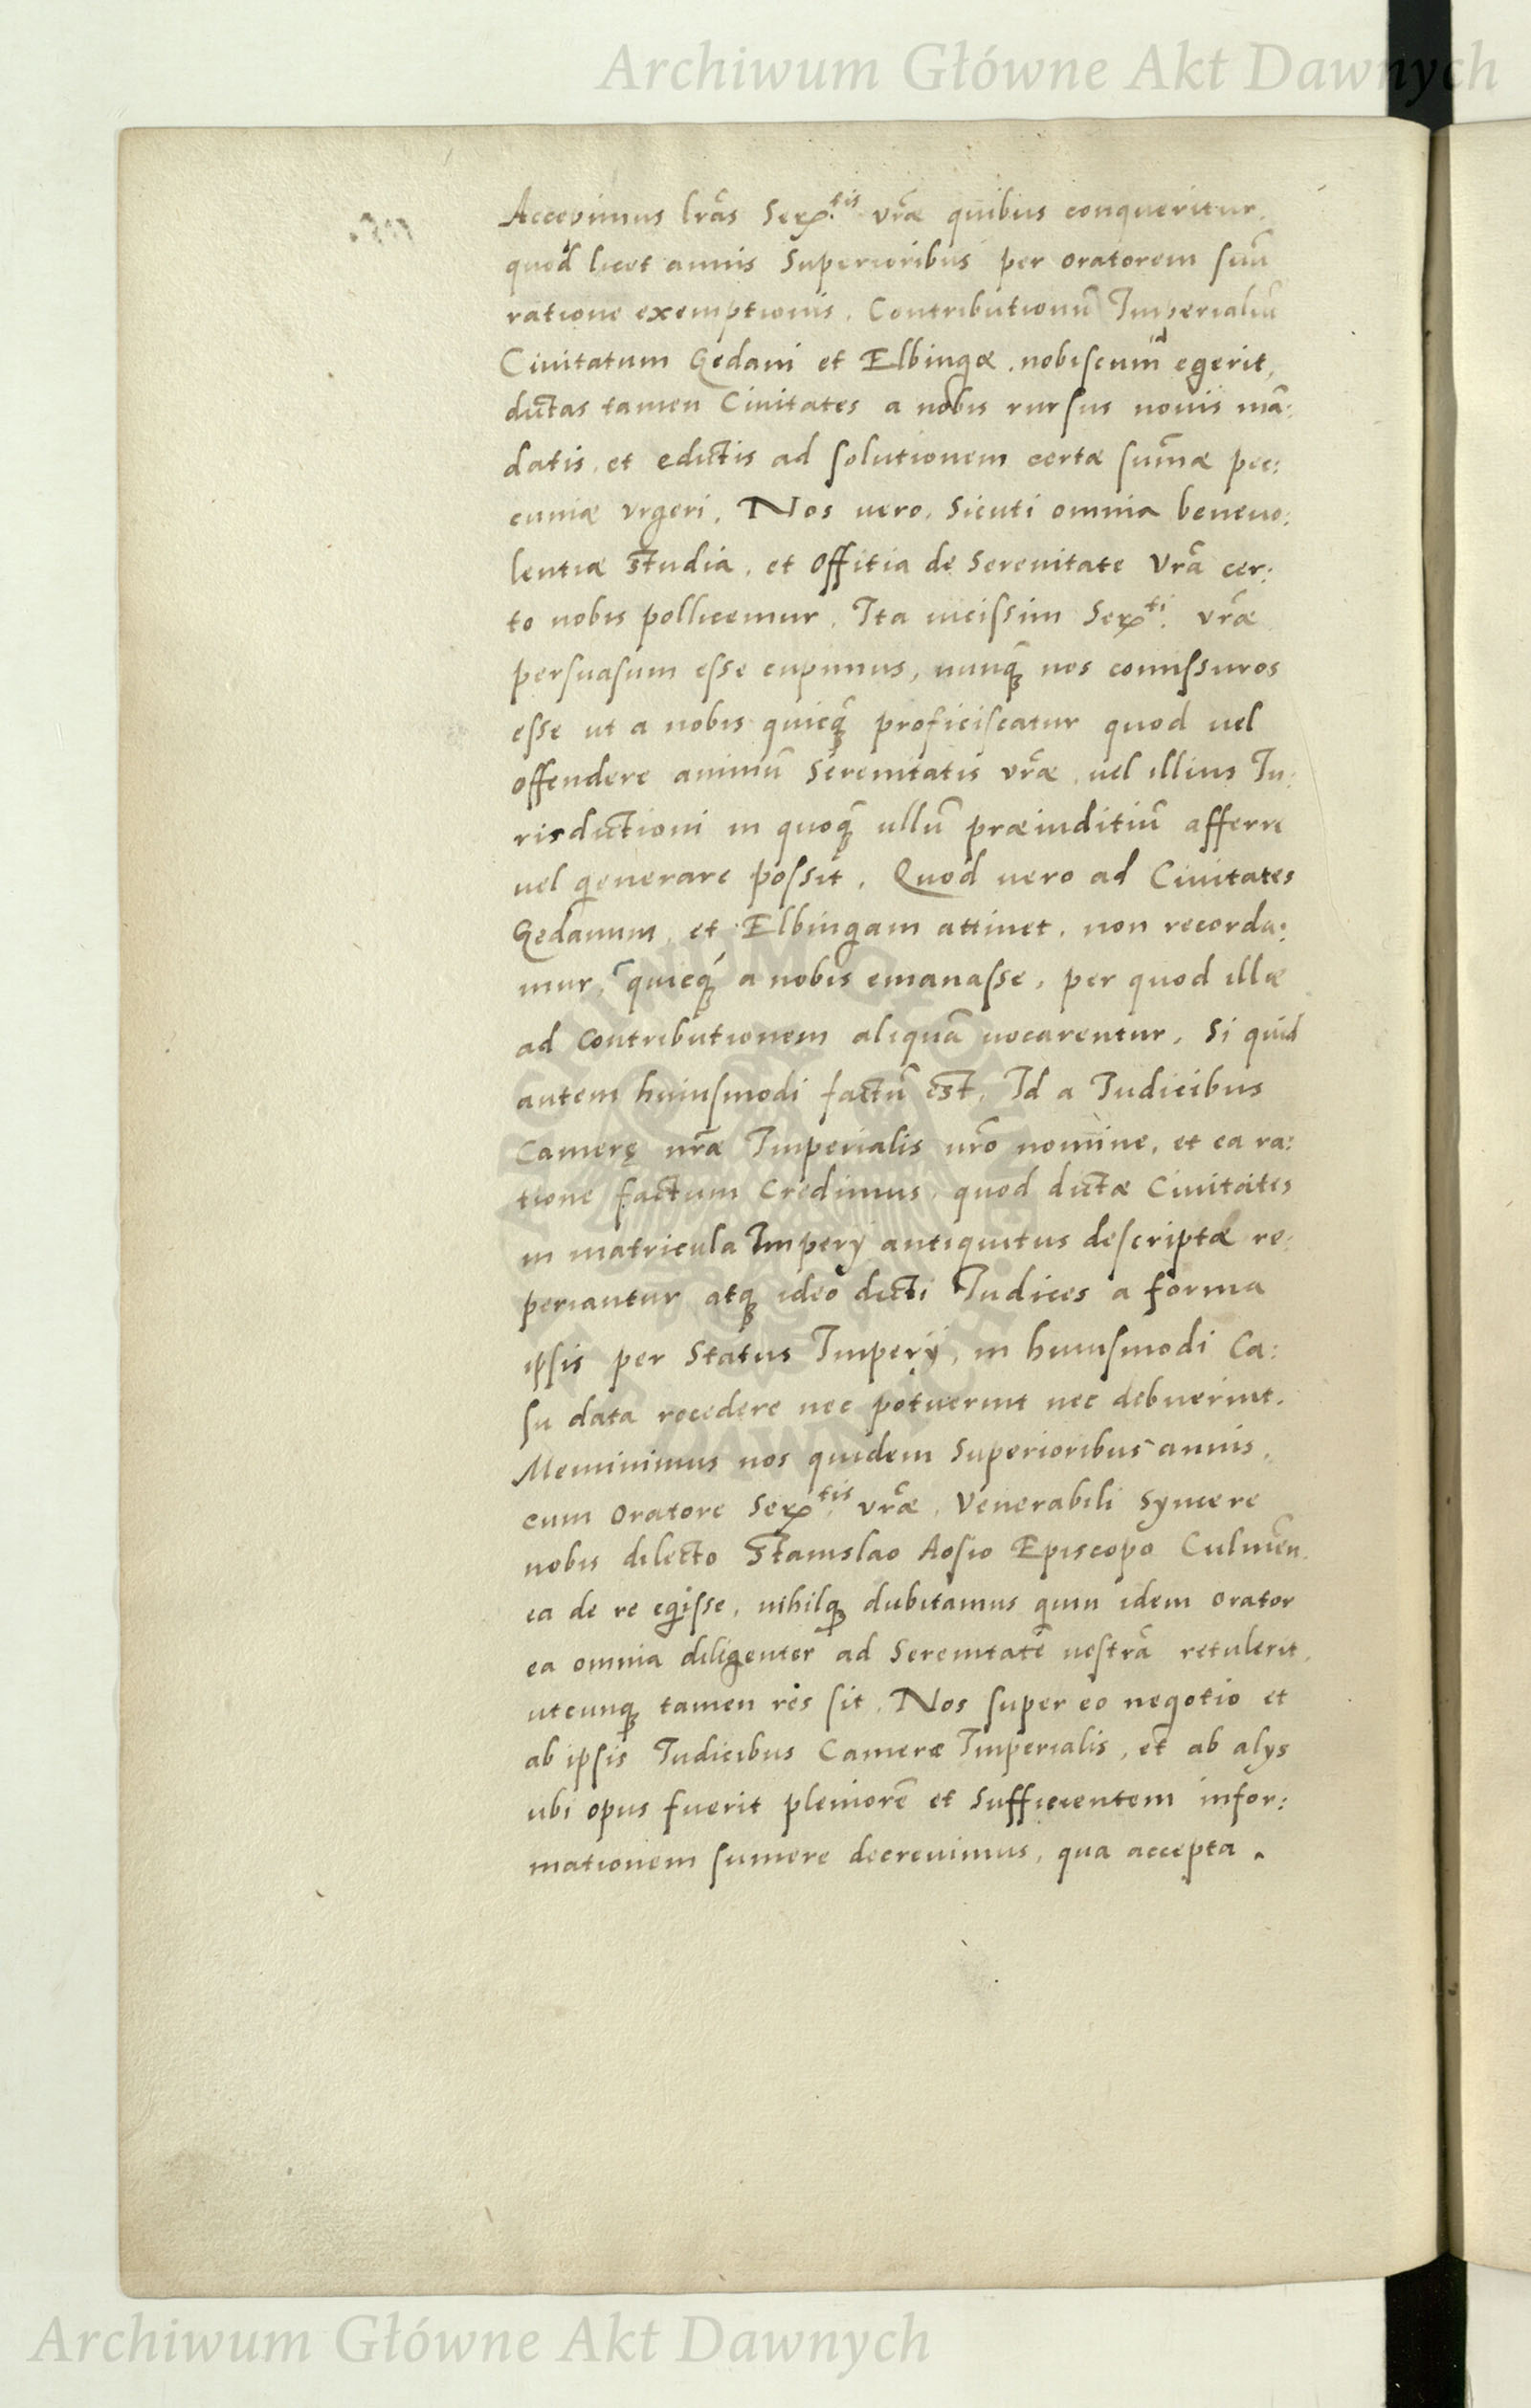 Archiwum Główne Akt Dawnych
Accepimus lr̃as Ser.tis vr̃æ quibus conqueritur.
quod licet annis Superioribus per oratorem suũ
ratione exemptionis. Contributionũ Imperialiũ
Ciuitatum Gedani et Elbingæ. nobiscum id egerit,
dictas tamen Ciuitates a nobis rursus nouis mã:
datis, et edictis ad solutionem certæ sum̃æ pec:
cuniæ vrgeri. Nos vero, sicuti omnia beneuo:
lentiæ studia, et Offitia de Serenitate Vr̃a cer:
to nobis pollicemur. Ita uicissim Ser.ti vr̃æ
persuasum esse cupimus, nunq̃ nos comissuros
esse ut a nobis quicq̃ proficiscatur quod uel
offendere animũ Serenitatis vr̃æ, uel illius Iu:
risdictioni in quoq̃ ullũ præiuditiũ afferre
uel generare possit. Quod uero ad Ciuitates
Gedanum, et Elbingam attinet, non recorda:
mur, quicq̃ a nobis emanasse, per quod illæ
ad Contributionem aliquã uocarentur, Si quid
autem huiusmodi factũ est, Id a Iudicibus
Camerę nr̃æ Imperialis nr̃o nomine, et ea ra:
tione factum Credimus, quod dictæ Ciuitates
in matricula Impery antiquitus descriptæ re:
periantur atq ideo dicti Iudices a forma
ipsis per Status Impery, in huiusmodi Ca:
su data recedere nec potuerint nec debuerint.
Meminimus nos quidem Superioribus annis,
cum Oratore Ser.tis vr̃æ, Venerabili Syncere
nobis dilecto Stanislao Hosio Episcopo Culmẽn.
ea de re egisse, nihilq dubitamus quin idem Orator
ea omnia diligenter ad Serenitatẽ uestrã retulerit,
utcunq tamen res sit. Nos super eo negotio et
ab ipsis Iudicibus Cameræ Imperialis, et ab alys
ubi opus fuerit pleniorẽ et Sufficientem infor:
mationem sumere decreuimus, qua accepta.
Archiwum Główne Akt Dawnych